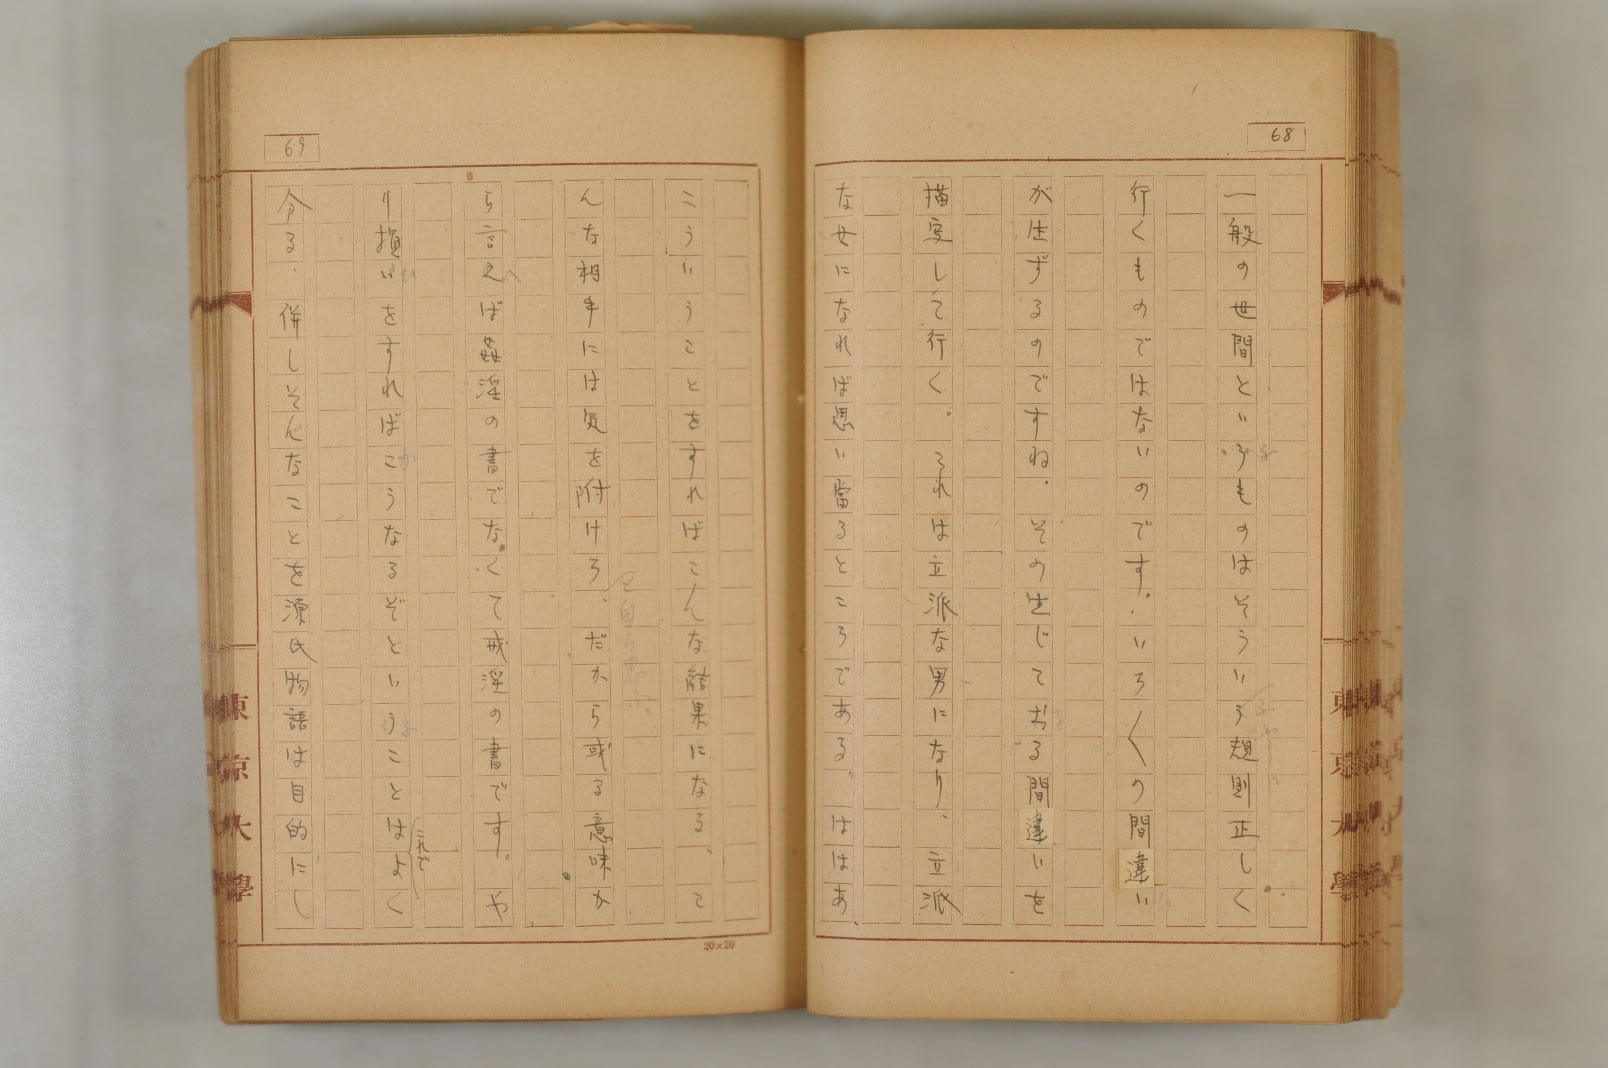 68
一般の世間といふものはそういう規則正しく
行くものではないのです。いろ〱の間違い
が生ずるのですね。その生じてお る間違いを
描写して行く。それは立派な男になり、立派
な女になれば思い當るところである。ははあ
69
こういうことをすればこんな結果になる、こ
んな相手には気を附けろ、だから或る意味か
と自ら思ふ。
ら言えば姦淫の書でなくて戒淫の書です。や
り損いをすればこうなるぞということはよく
これで
分る。併しそんなことを源氏物語は目的にし
20×20
東京大學